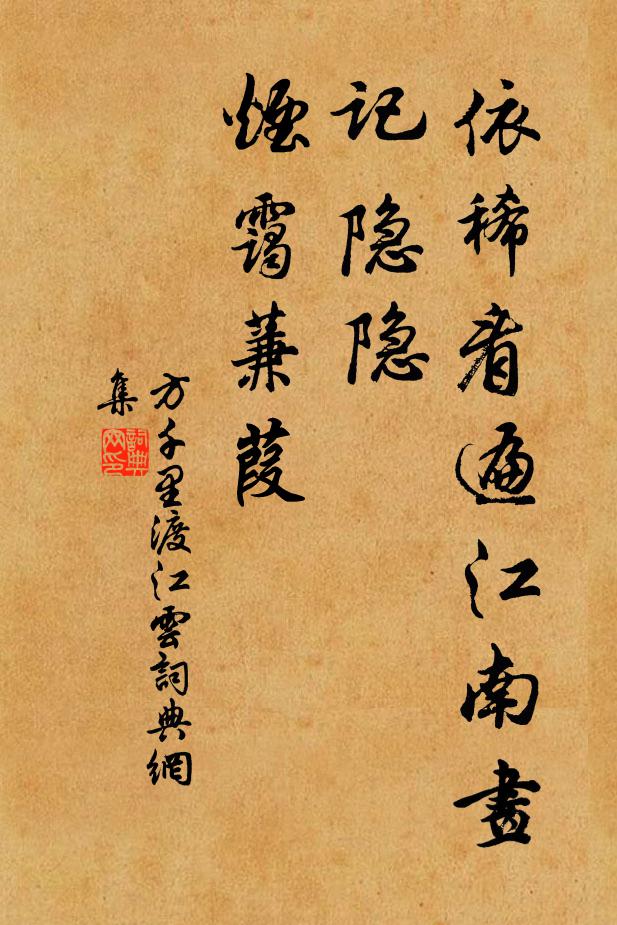 依稀看遍江南畫
記隐隐
煙靄蒹葭
方千里渡江雲詞典網
集
詞典
网印